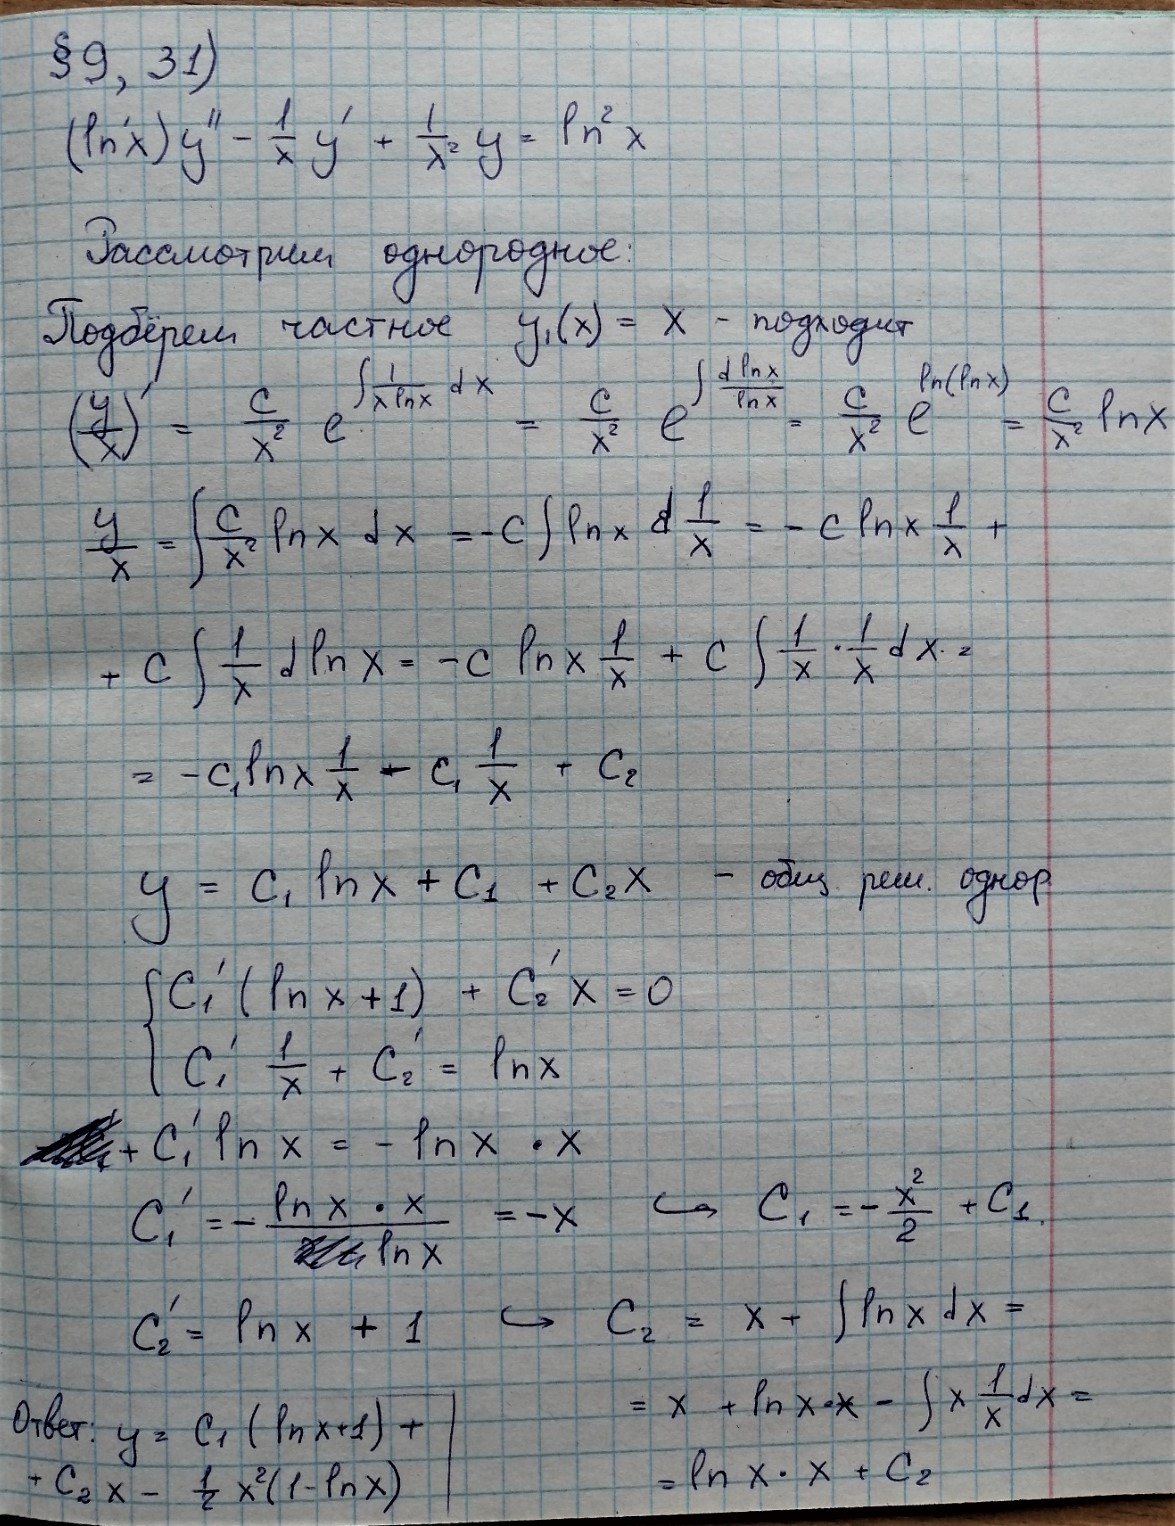 §9, 31)
(ln x) y'' - 1/x y' + 1/x² y = ln² x
Рассмотрим однородное:
Подберем частное y₁(x) = x - подходит
(y/x)' = c/x² e^(∫ 1/(x ln x) dx) = c/x² e^(∫ d ln x / ln x) = c/x² e^(ln(ln x)) = c/x² ln x
y/x = ∫ c/x² ln x dx = -c ∫ ln x d 1/x = - c ln x 1/x +
+ c ∫ 1/x d ln x = -c ln x 1/x + c ∫ 1/x · 1/x dx =
= -c₁ ln x 1/x - c₁ 1/x + c₂
y = c₁ ln x + c₁ + c₂ x - общ. реш. однор
{ C₁' (ln x + 1) + C₂' x = 0
C₁' 1/x + C₂' = ln x
+ C₁' ln x = - ln x · x
C₁' = - (ln x · x)/(ln x) = -x ↪ C₁ = - x²/2 + C₁.
C₂' = ln x + 1 ↪ C₂ = x + ∫ ln x dx =
= x + ln x · x - ∫ x 1/x dx =
= ln x · x + C₂
Ответ: y = C₁ (ln x + 1) +
+ C₂ x - 1/2 x² (1 - ln x)